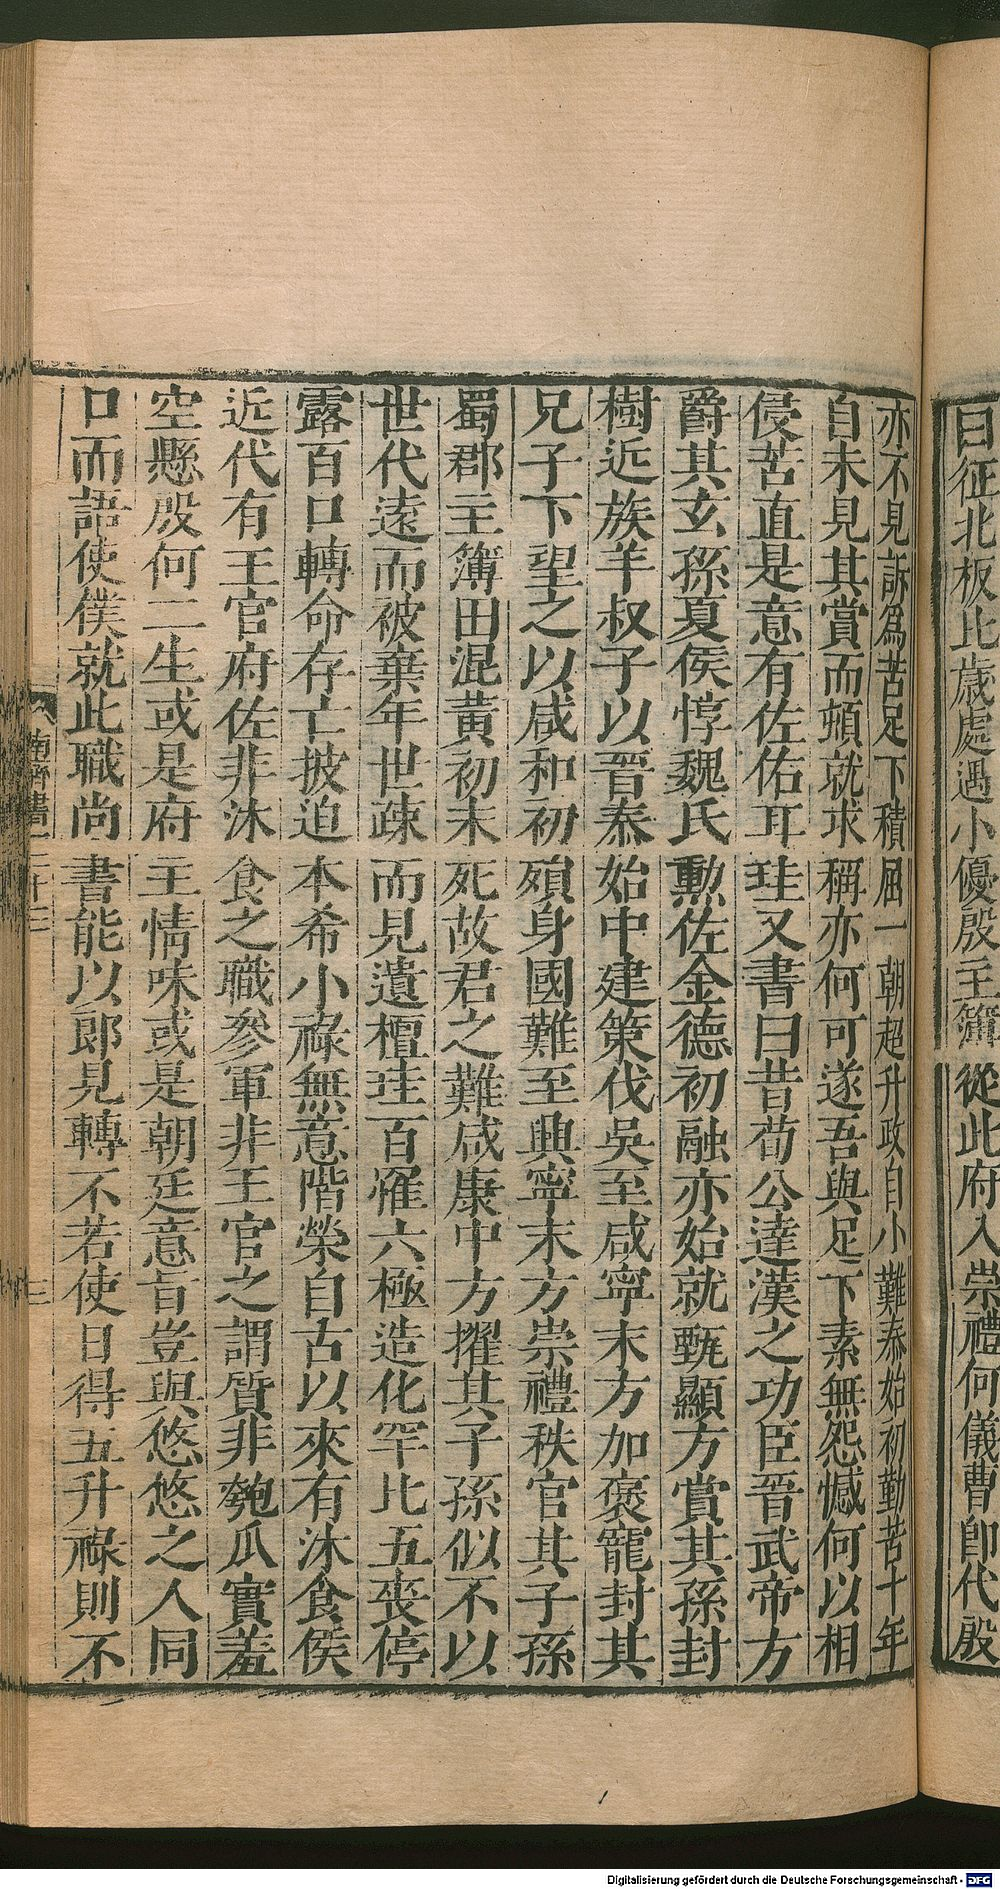 曰征北板比歲處遇小優殷主簿從此府入崇禮何儀曹即代殷
亦不見訴爲苦足下積屈一朝超升政自小難泰始初勤苦十年
自未見其賞而頓就求稱亦何可遂吾與足下素無怨憾何以相
侵苦直是意有佐佑耳珪又書曰昔荀公達漢之功臣晉武帝方
爵其玄孫夏侯惇魏氏勲佐金德初融亦始就甄顯方賞其孫封
樹近族羊叔子以晉泰始中建策伐吳至咸寧末方加褒寵封其
兄子下望之以咸和初殞身國難至興寧末方崇禮秩官其子孫
蜀郡主簿田混黃初末死故君之難咸康中方擢其子孫似不以
世代遠而被棄年世疎而見遺檀珪百罹六極造化罕比五喪停
露百口轉命存亡披迫本希小祿無意階榮自古以來有沐食侯
近代有王官府佐非沐食之職參軍非王官之謂質非匏瓜實羞
空懸殷何二生或是府主情味或是朝廷意旨豈與悠悠之人同
口而語使僕就此職尚書能以郎見轉不若使日得五升祿則不
南齊書 三十三
三
Digitalisierung gefördert durch die Deutsche Forschungsgemeinschaft - DFG